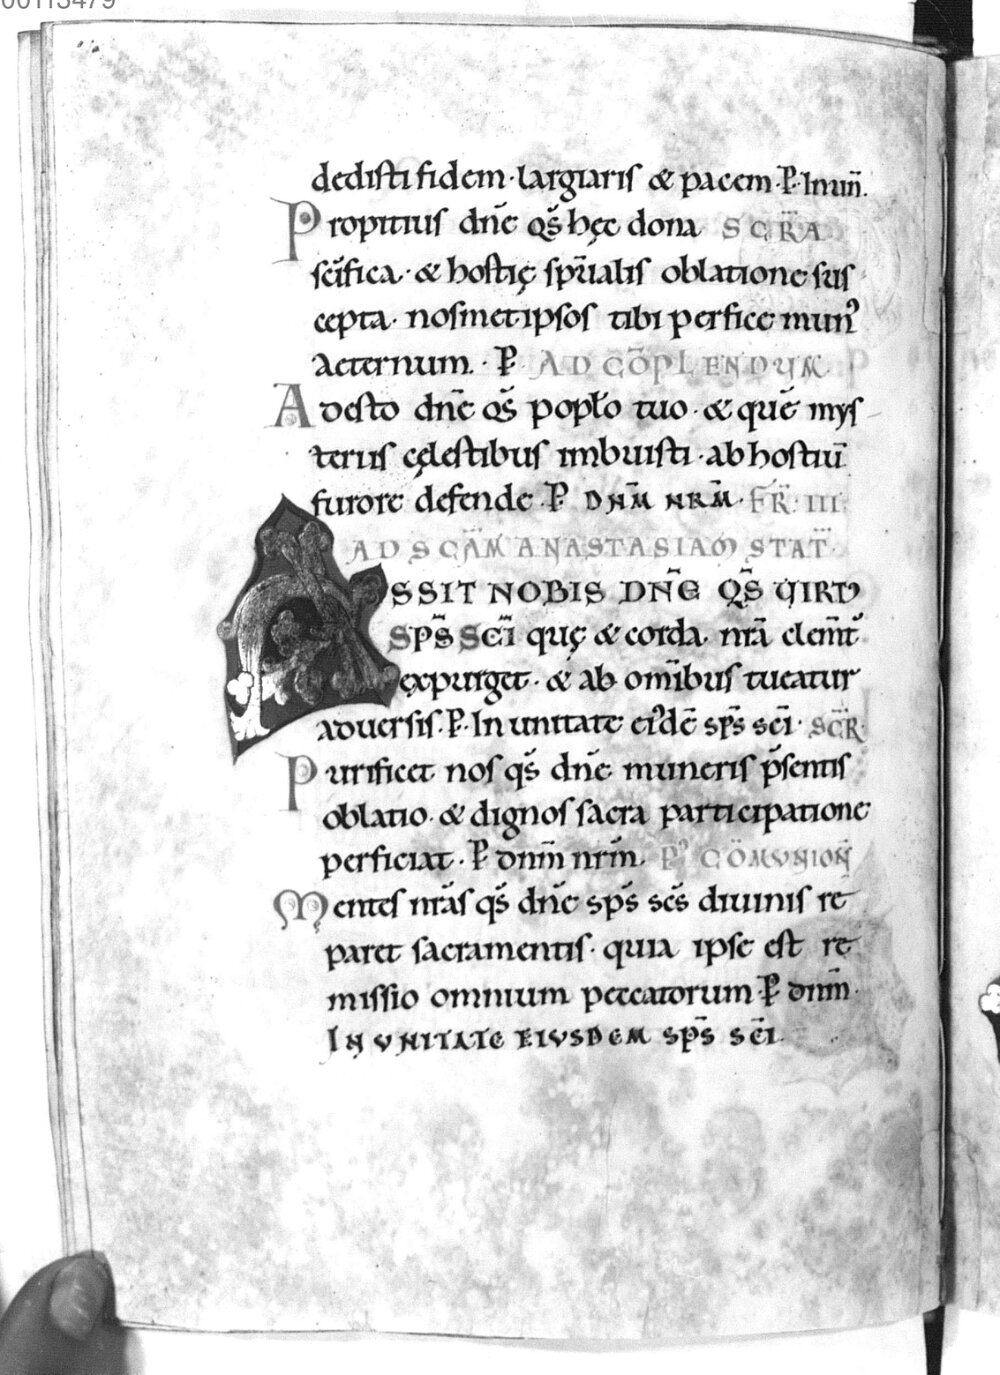 00113479
dedisti fidem· largiaris & pacem·P̄·Inuñ.
Propitius dn̄e qs̄ hęc dona SCR̄A
scīfica·& hostię spūalis oblatione sus
cepta· nosmet ipsos tibi perfice mun᾽
aeternum.·P̄ AD CŌPLENDUM
Adesto dn̄e qs̄ popło tuo·& quē mys
teriis cęlestibus imbuisti·ab hostiū
furore defende·P̄ DNM̄ NRM̄·FR̄:III:
AD SCĀM ANASTASIAM STAT̄·
ASSIT NOBIS DN̄E QS̄ VIRTV
SPS̄ SCĪ quę & corda· nrā clem̄t᾽
expurget·& ab om̄ibus tueatur
aduersis·P̄·In unitate ei᾽dē sps̄ scī·SCR̄·
Purificet nos qs̄ dn̄e muneris p̄sentis
oblatio·& dignos sacra participatione
perficiat·P̄ dnm̄ nrm̄. P᾽ CŌMVNION̄
Mentes nrās qs̄ dn̄e sps̄ scs̄ diuinis re
paret sacramentis· quia ipse est re
missio omnium peccatorum·P̄ dnm̄·
IN VNITATE EIVSDEM SPS̄ SCĪ.